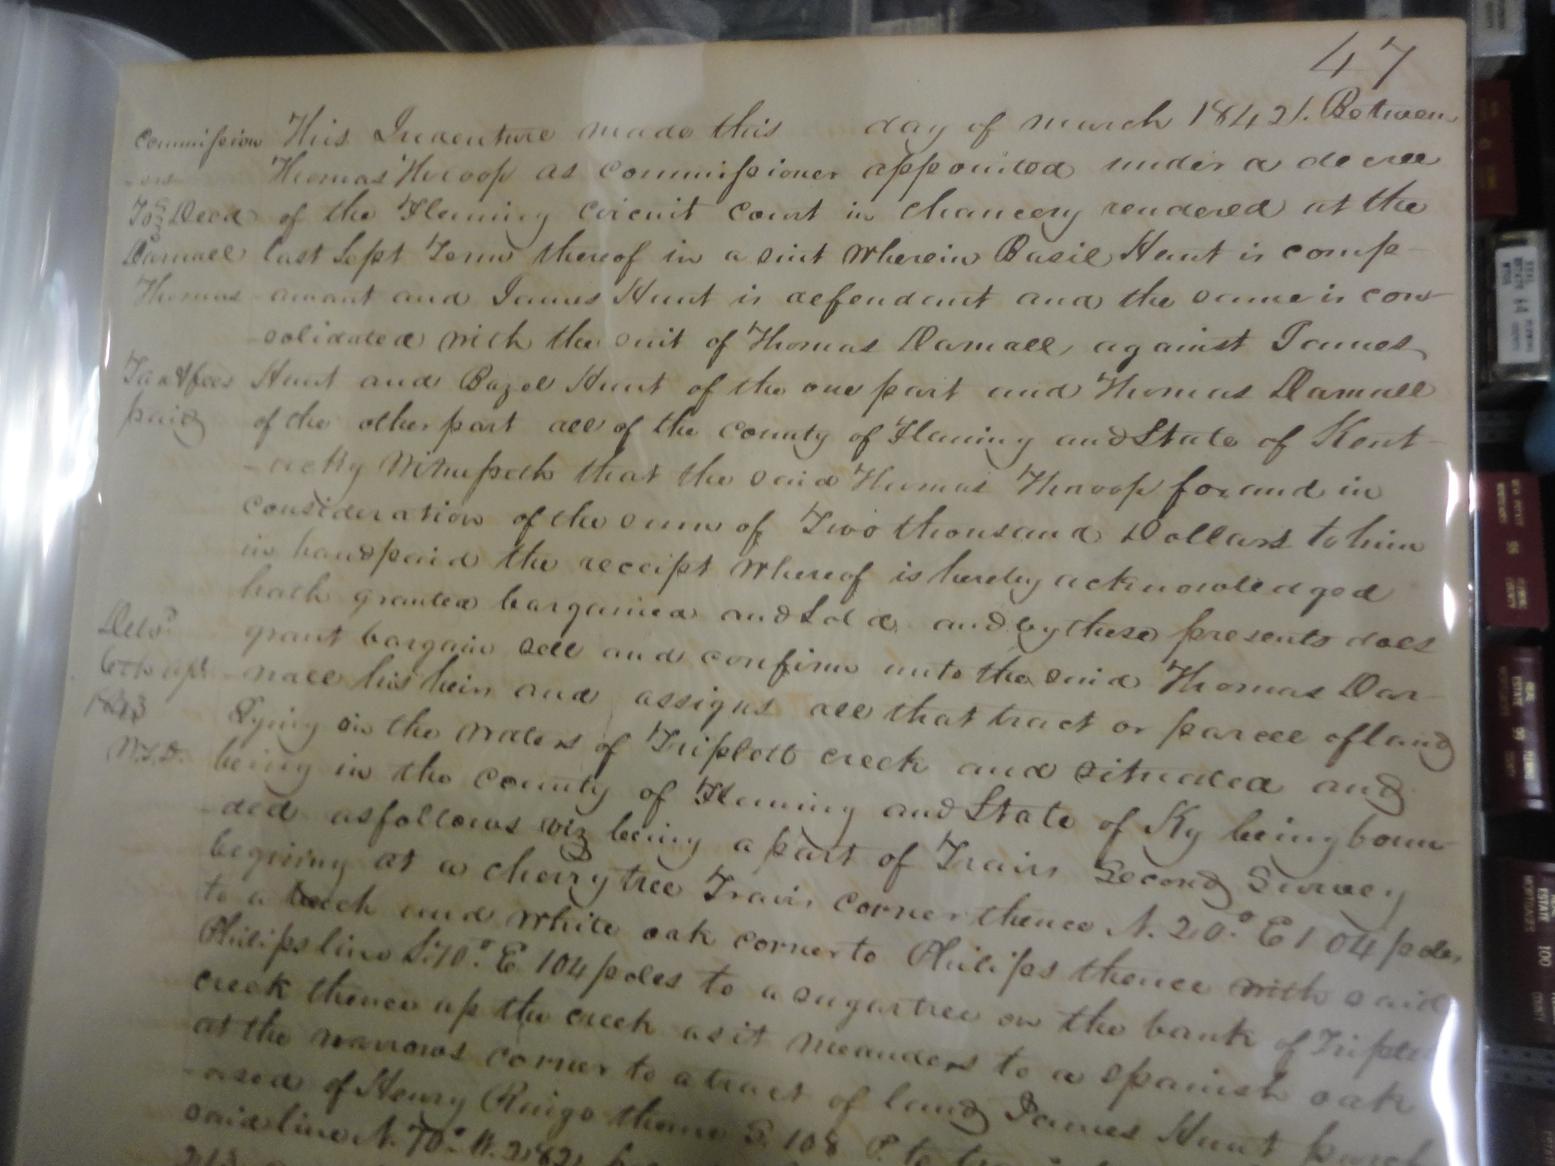 47
Commission This Indenture made this day of march 1842. Between
-ers Thomas Throop as commissioner appointed under a decree
To Deed of the Fleming circuit court in chancery rendered at the
Darnall last Sept Term thereof in a suit wherein Basil Hunt is comp-
Thomas -ainant and James Hunt is defendant and the same is con-
-solidated with the suit of Thomas Darnall against James
Tax & fees Hunt and Bazel Hunt of the one part and Thomas Darnall
paid of the other part all of the county of Fleming and State of Kent-
-ucky Witnesseth that the said Thomas Throop for and in
consideration of the sum of Two thousand Dollars to him
in hand paid the receipt whereof is hereby acknowledged
hath granted bargained and Sold and by these presents does
Deld grant bargain sell and confirm unto the said Thomas Dar-
-nall his heirs and assigns all that tract or parcel of land
1843 Lying on the waters of Triplett creek and situated and
being in the county of Fleming and State of Ky being boun-
-ded as follows viz being a part of Travis Second Survey
begining at a cherry tree Travis corner thence N. 20° E 104 poles
to a beech and white oak corner to Philips thence with said
Philips line S. 70° E 104 poles to a sugartree on the bank of Triplett
creek thence up the creek as it meanders to a spanish oak
at the narrows corner to a tract of land James Hunt purch
-ased of Henry Ringo thence S. 108 P. to
said line N. 70° W. 282